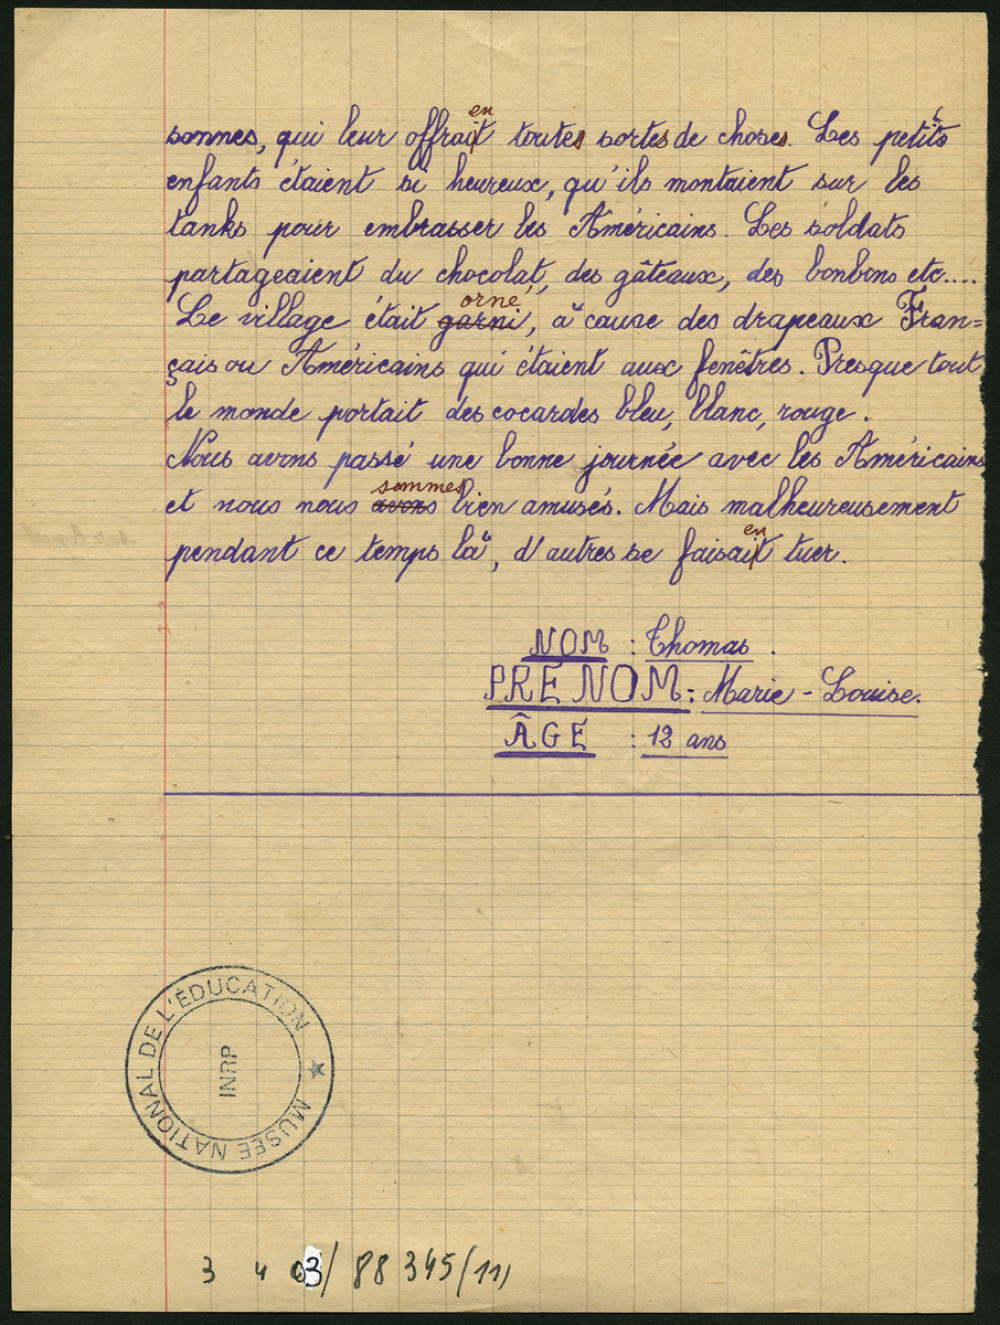 sonnes, qui leur offraient toutes sortes de choses. Les petits
enfants étaient si heureux, qu'ils montaient sur les
tanks pour embrasser les Américains. Les soldats
partageaient du chocolat, des gâteaux, des bonbons etc....
orné
Le village était garni, à cause des drapeaux Fran=
çais ou Américains qui étaient aux fenêtres. Presque tout
le monde portait des cocardes bleu, blanc, rouge.
Nous avons passé une bonne journée avec les Américains
sommes
et nous nous avons bien amusés. Mais malheureusement
pendant ce temps là, d'autres se faisaient tuer.
NOM : Thomas.
PRENOM : Marie - Louise.
ÂGE : 12 ans
MUSÉE NATIONAL DE L'ÉDUCATION ★
INRP
3 4 03/88345(11)